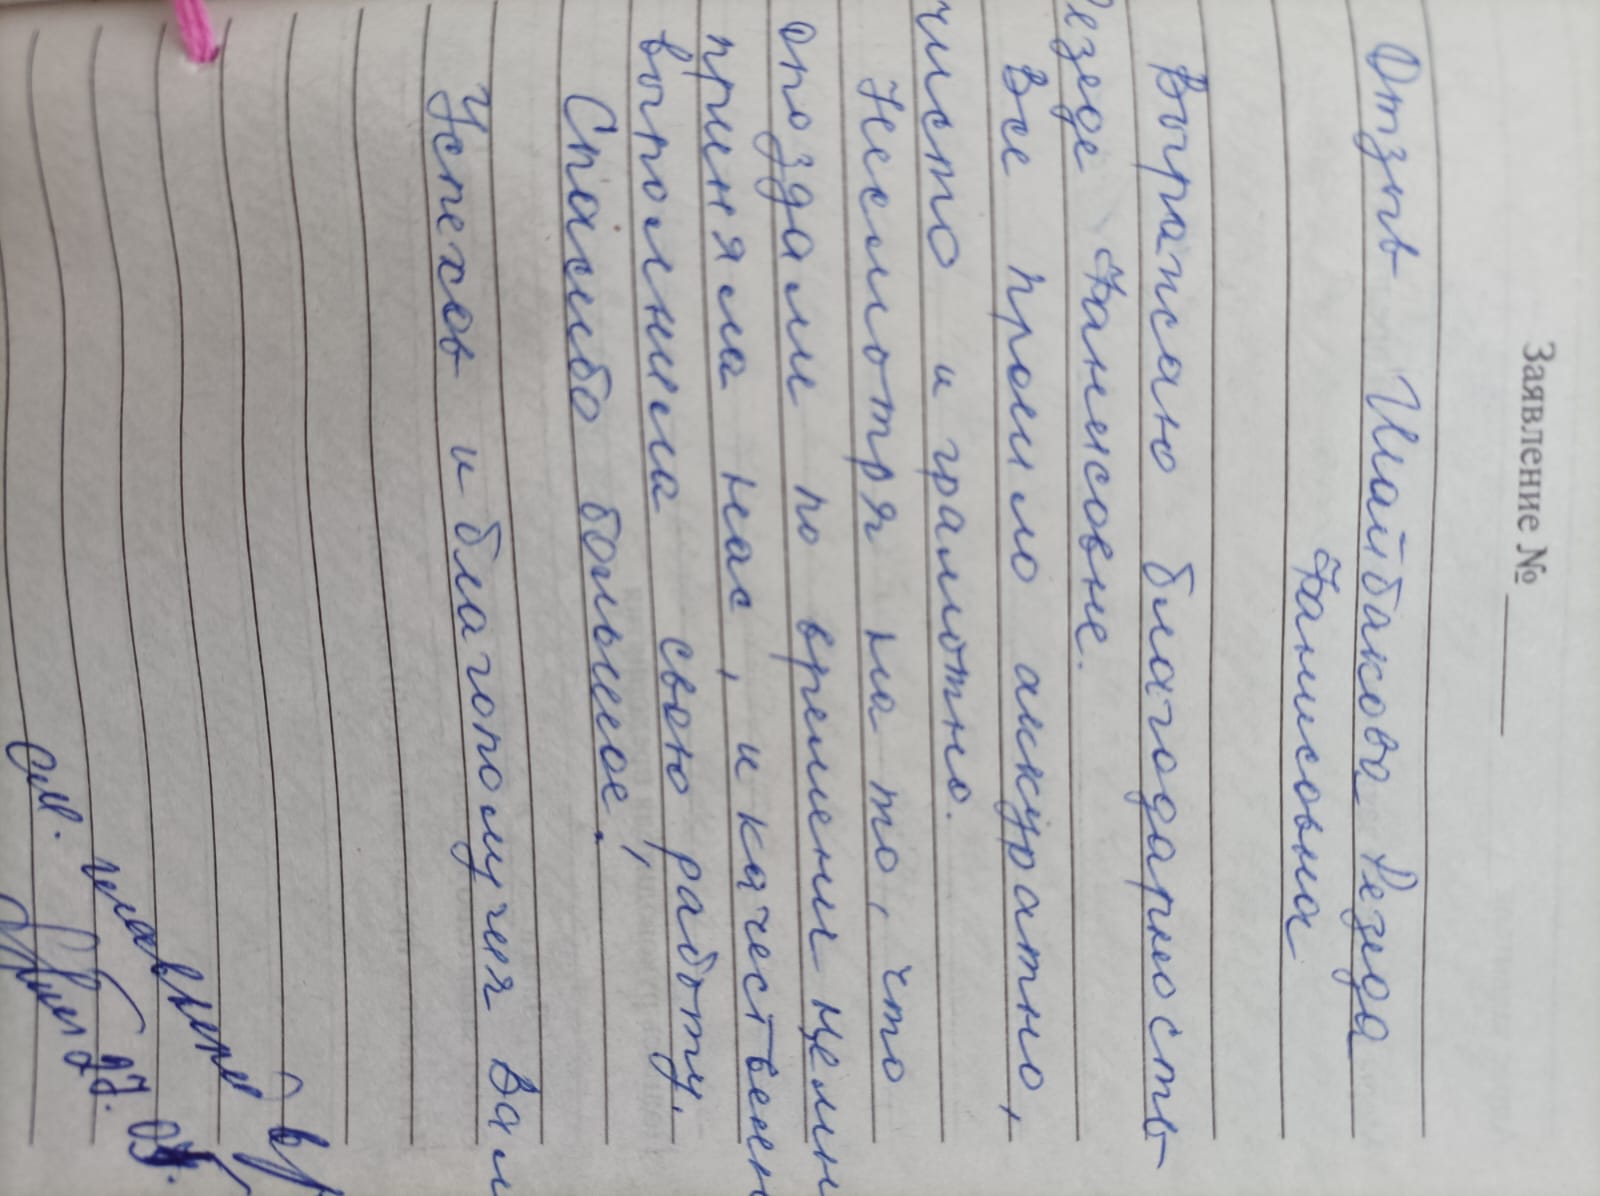 Заявление №
Отзыв Шайбакова Резеда
Фанисовна
Выражаю благодарность
Резеде Фанисовне.
Все прошло аккуратно,
чисто и грамотно.
Несмотря на то, что
опоздали по времени
приняла нас, и качествен
выполнила свою работу.
Спасибо большое!
Успехов и благополучия Вам